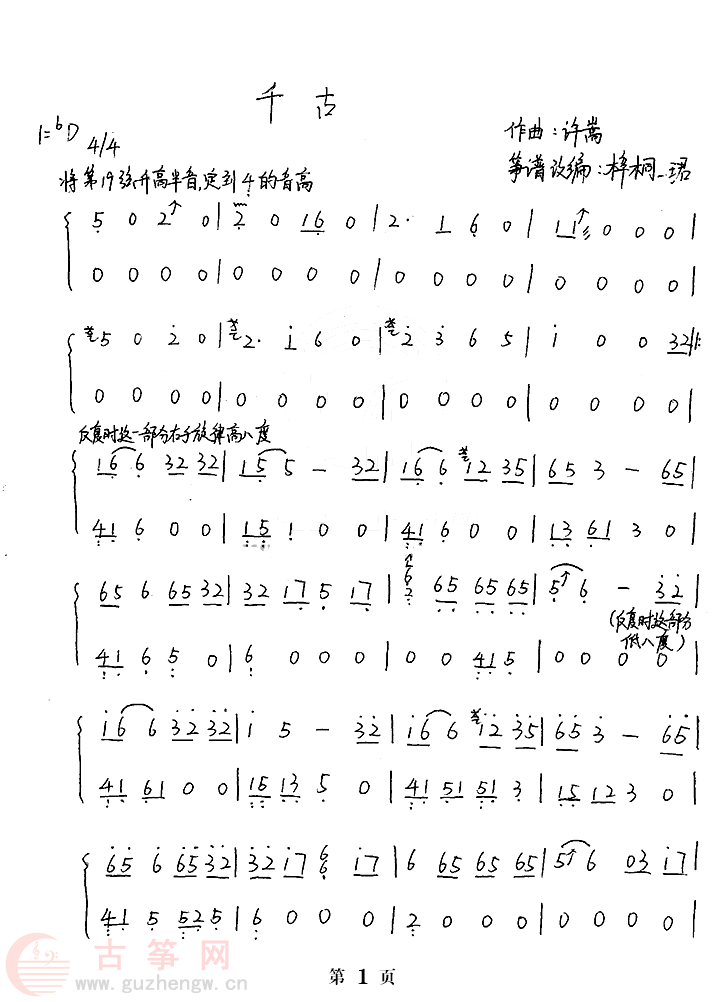 千古
1=♭D 4/4
作曲：许嵩
筝谱改编：梓桐_珺
将第19弦升高半音,定到4的音高
5 0 2↑ 0 | 2 0 1 6 0 | 2· 1 6 0 | 1 1↑ 0 0 0 |
0 0 0 0 | 0 0 0 0 | 0 0 0 0 | 0 0 0 0 |
5 0 2 0 | 2· 1 6 0 | 2 3 6 5 | 1 0 0 3 2 |:
0 0 0 0 | 0 0 0 0 | 0 0 0 0 | 0 0 0 0 |
反复时这一部分右手旋律高八度
1 6 6 3 2 3 2 | 1 5 5 – 3 2 | 1 6 6 1 2 3 5 | 6 5 3 – 6 5 |
4 1 6 0 0 | 1 5 1 0 0 | 4 1 6 0 0 | 1 3 6 1 3 0 |
6 5 6 6 5 3 2 | 3 2 1 7 5 1 7 | 2 6 6 5 6 5 6 5 | 5↑ 6 – 3 2 |
(反复时这部分
低八度)
4 1 6 5 0 | 6 0 0 0 | 0 0 4 1 5 | 0 0 0 0 |
1 6 6 3 2 3 2 | 1 5 – 3 2 | 1 6 6 1 2 3 5 | 6 5 3 – 6 5 |
4 1 6 1 0 0 | 1 5 1 3 5 0 | 4 1 5 1 5 1 3 | 1 5 1 2 3 0 |
6 5 6 6 5 3 2 | 3 2 1 7 6 6 1 7 | 6 6 5 6 5 6 5 | 5↑ 6 0 3 1 7 |
4 1 5 5 2 5 | 6 0 0 0 | 2 0 0 0 | 0 0 0 0 |
古筝网
www.guzhengw.cn
第 1 页